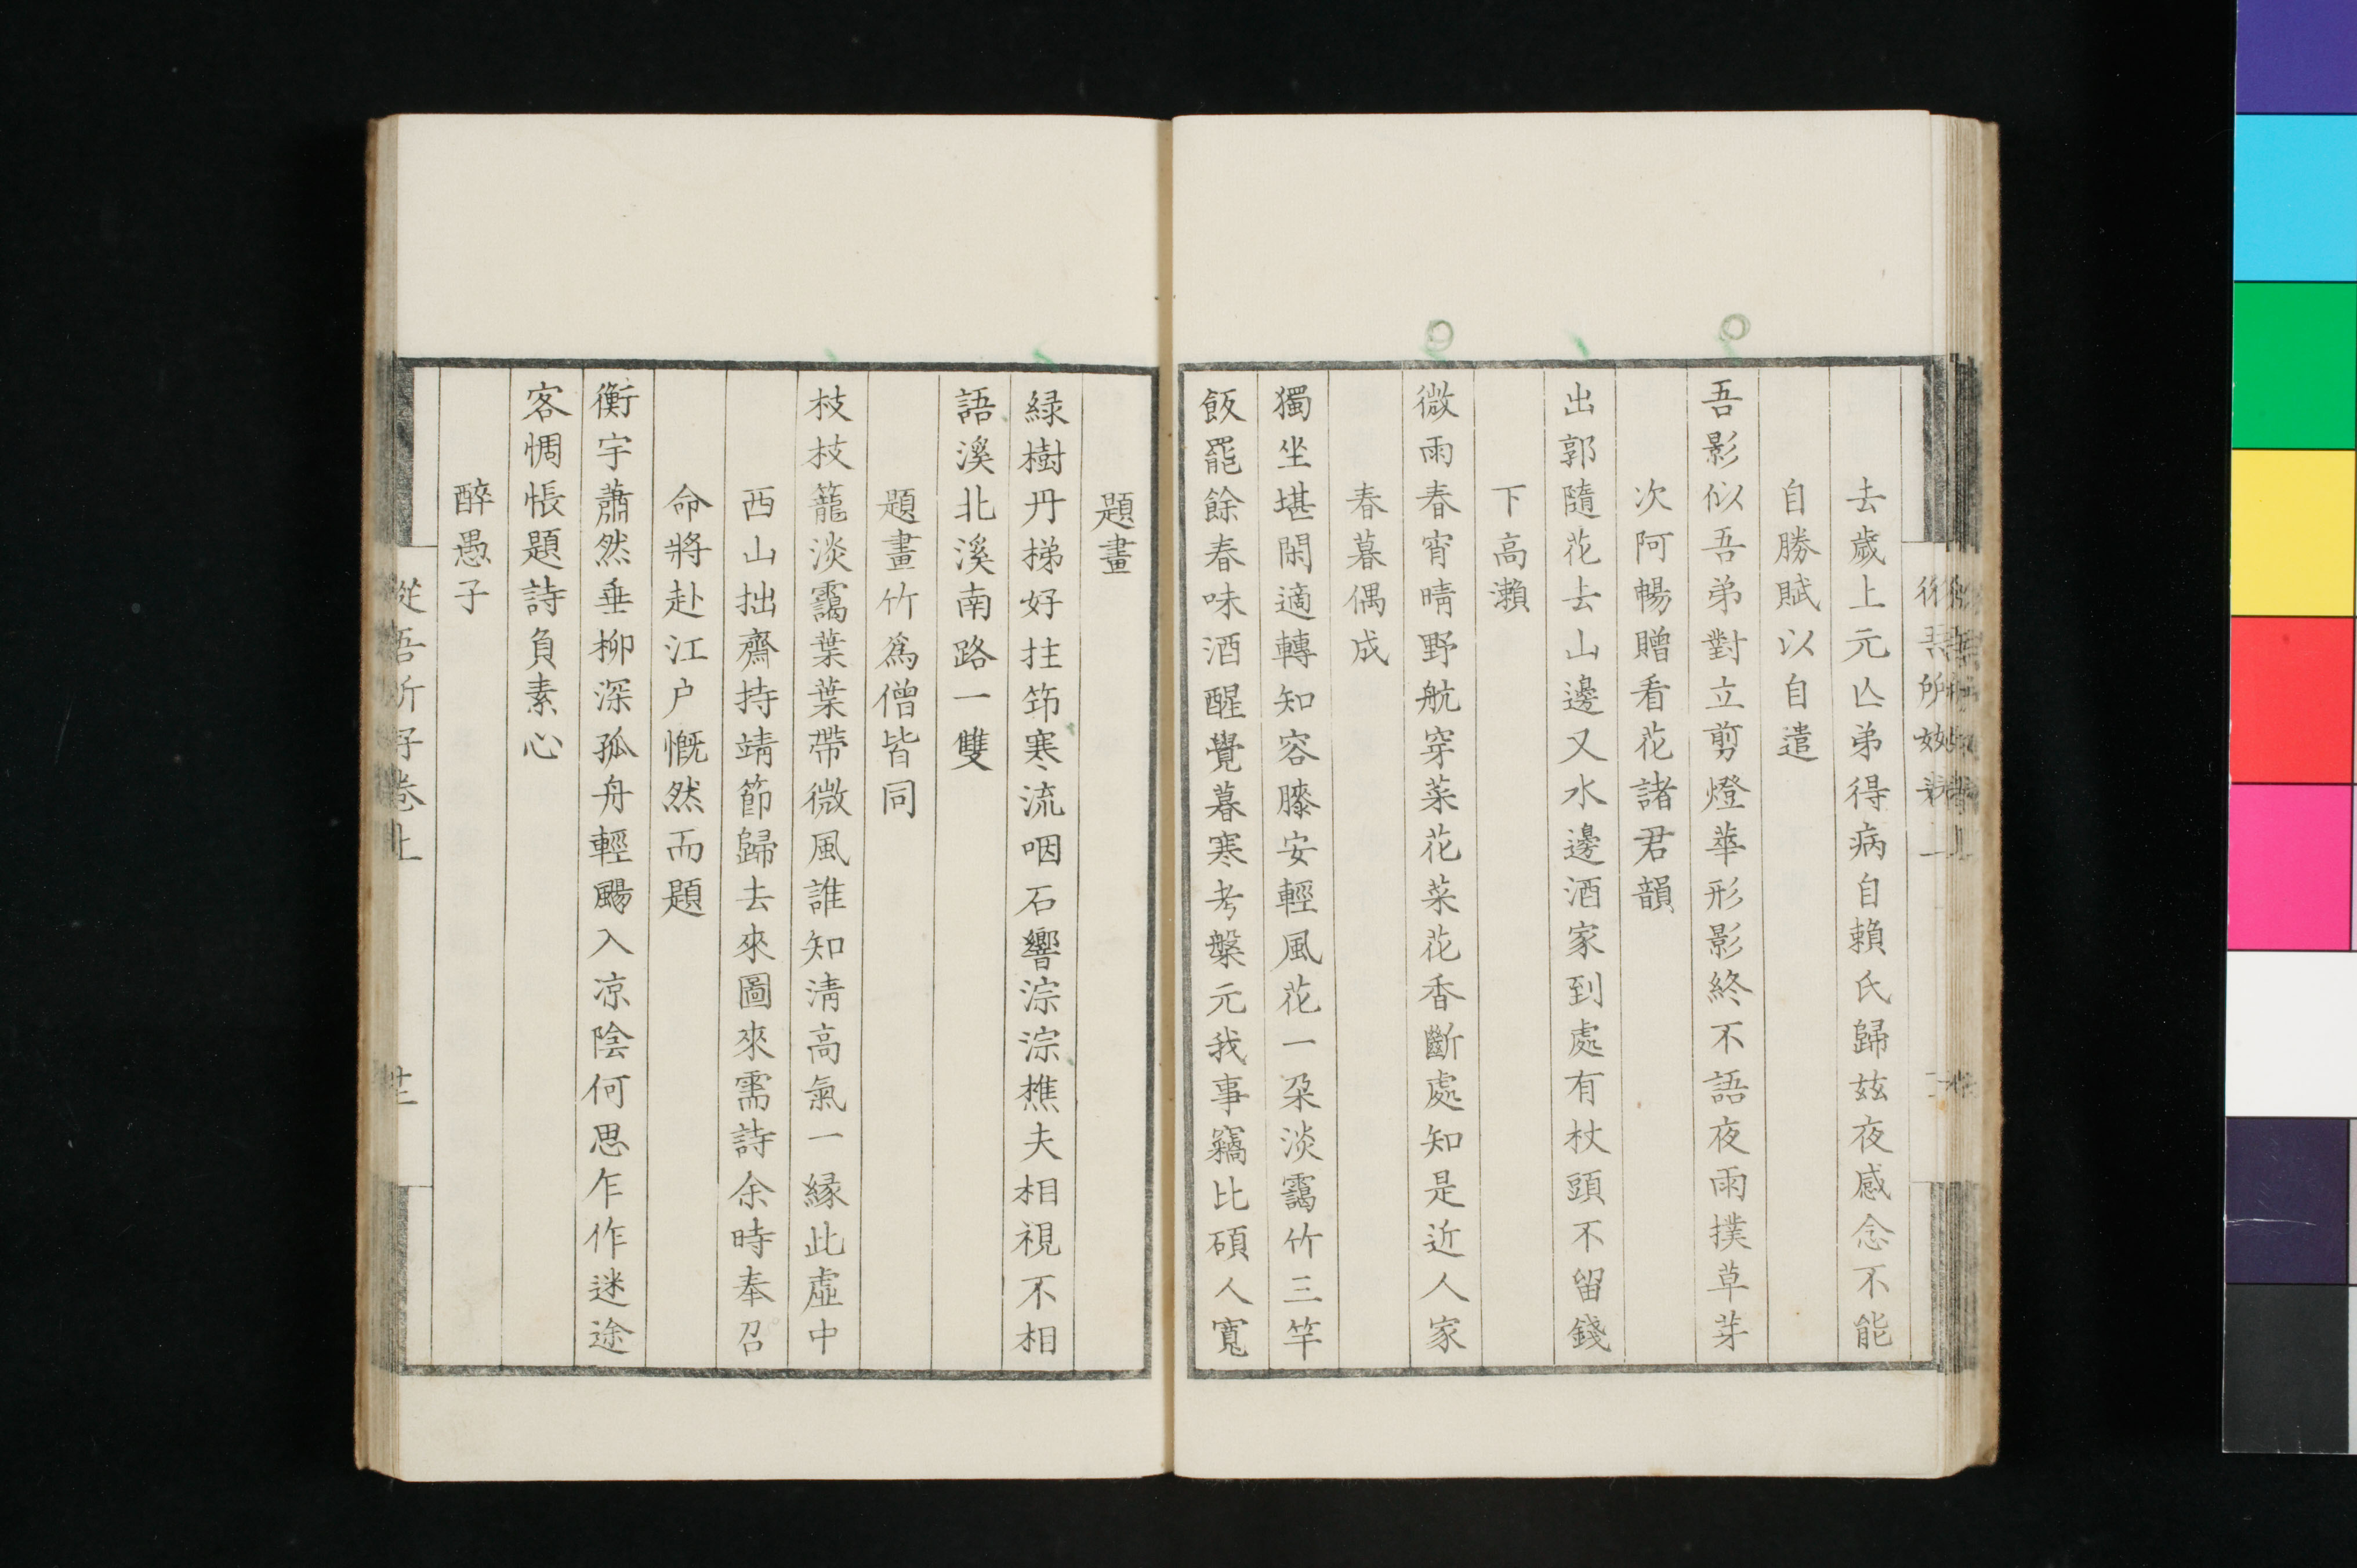 去歲上元亾弟得病自賴氏歸玆夜感念不能
自勝賦以自遣
吾影似吾弟對立剪燈華形影終不語夜雨撲草芽
次阿暢贈看花諸君韻
出郭隨花去山邊又水邊酒家到處有杖頭不留錢
下高瀨
微雨春宵晴野航穿菜花菜花香斷處知是近人家
春暮偶成
獨坐堪閑適轉知容膝安輕風花一朶淡靄竹三竿
飯罷餘春味酒醒覺暮寒考槃元我事竊比碩人寬
題畫
緑樹丹梯好拄笻寒流咽石響淙淙樵夫相視不相
語溪北溪南路一雙
題畫竹爲僧皆同
枝枝籠淡靄葉葉帶微風誰知淸高氣一縁此虛中
西山拙齋持靖節歸去來圖來需詩余時奉召
命將赴江户慨然而題
衡宇蕭然垂柳深孤舟輕颺入凉陰何思乍作迷途
客惆悵題詩負素心
醉愚子
從吾所好卷上